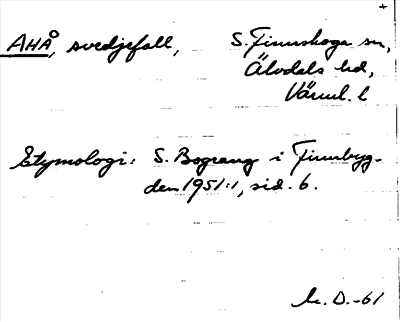 +
AHÅ, svedjefall, S. Finnskoga sn,
Älvdals hd,
Värml. l
Etymologi: S. Bograng i Finnbyg-
den 1951:1, sid. 6.
D. -61